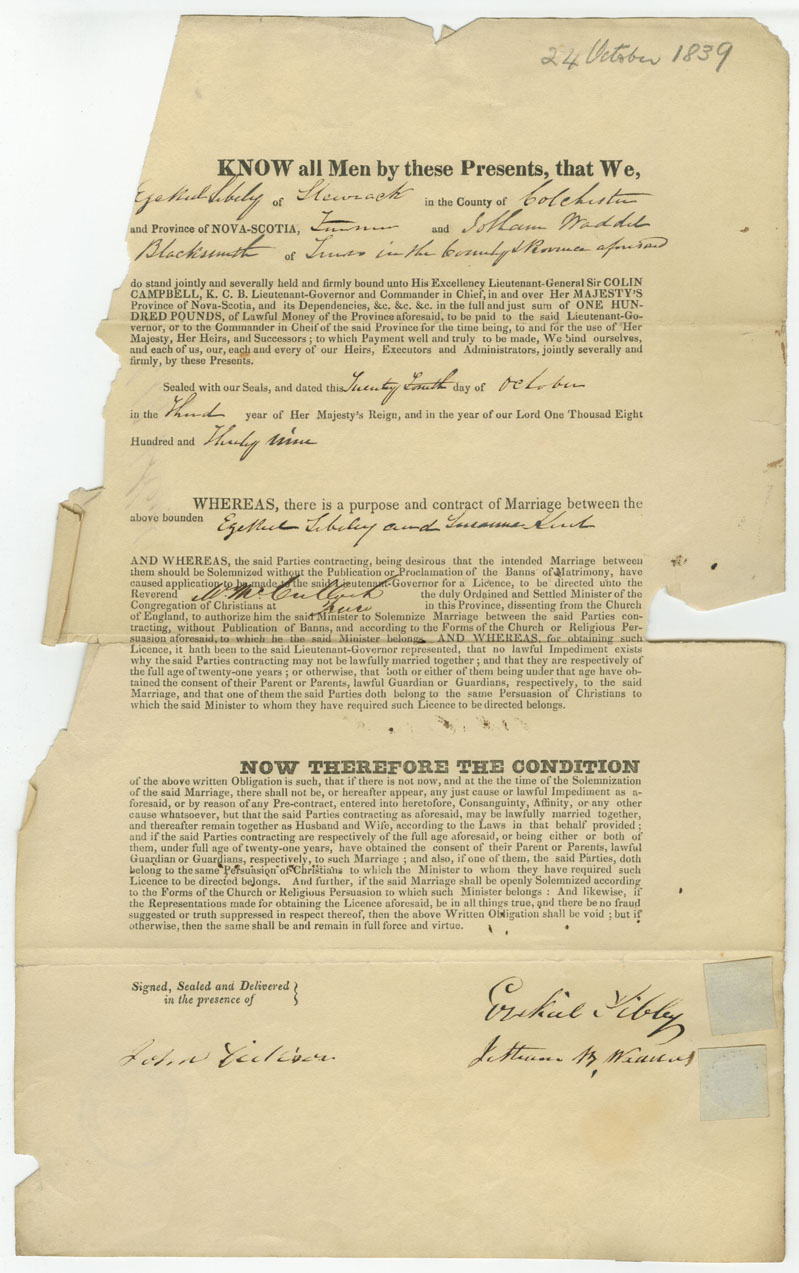 24 October 1839
KNOW all Men by these Presents, that We,
Ezekiel Sibely of Stewiack in the County of Colchester
and Province of NOVA-SCOTIA, and Jotham Waddel
Blacksmith of Truro in the County & Province aforesaid
do stand jointly and severally held and firmly bound unto His Excellency Lieutenant-General Sir COLIN
CAMPBELL, K. C. B. Lieutenant-Governor and Commander in Chief, in and over Her MAJESTY'S
Province of Nova-Scotia, and its Dependencies, &c. &c. &c. in the full and just sum of ONE HUN-
DRED POUNDS, of Lawful Money of the Province aforesaid, to be paid to the said Lieutenant-Go-
vernor, or to the Commander in Cheif of the said Province for the time being, to and for the use of Her
Majesty, Her Heirs, and Successors ; to which Payment well and truly to be made, We bind ourselves,
and each of us, our, each and every of our Heirs, Executors and Administrators, jointly severally and
firmly, by these Presents.
Sealed with our Seals, and dated this Twenty Fourth day of October
in the Third year of Her Majesty's Reign, and in the year of our Lord One Thousad Eight
Hundred and Thirty nine
WHEREAS, there is a purpose and contract of Marriage between the
above bounden Ezekiel Sibley and Susanna Kent
AND WHEREAS, the said Parties contracting, being desirous that the intended Marriage between
them should be Solemnized without the Publication or Proclamation of the Banns of Matrimony, have
caused application to be made to the said Lieutenant-Governor for a Licence, to be directed unto the
Reverend McCulloch the duly Ordained and Settled Minister of the
Congregation of Christians at Truro in this Province, dissenting from the Church
of England, to authorize him the said Minister to Solemnize Marriage between the said Parties con-
tracting, without Publication of Banns, and according to the Forms of the Church or Religious Per-
suasion aforesaid, to which he the said Minister belongs. AND WHEREAS, for obtaining such
Licence, it hath been to the said Lieutenant-Governor represented, that no lawful Impediment exists
why the said Parties contracting may not be lawfully married together ; and that they are respectively of
the full age of twenty-one years ; or otherwise, that both or either of them being under that age have ob-
tained the consent of their Parent or Parents, lawful Guardian or Guardians, respectively, to the said
Marriage, and that one of them the said Parties doth belong to the same Persuasion of Christians to
which the said Minister to whom they have required such Licence to be directed belongs.
NOW THEREFORE THE CONDITION
of the above written Obligation is such, that if there is not now, and at the the time of the Solemnization
of the said Marriage, there shall not be, or hereafter appear, any just cause or lawful Impediment as a-
foresaid, or by reason of any Pre-contract, entered into heretofore, Consanguinty, Affinity, or any other
cause whatsoever, but that the said Parties contracting as aforesaid, may be lawfully married together,
and thereafter remain together as Husband and Wife, according to the Laws in that behalf provided ;
and if the said Parties contracting are respectively of the full age aforesaid, or being either or both of
them, under full age of twenty-one years, have obtained the consent of their Parent or Parents, lawful
Guardian or Guardians, respectively, to such Marriage ; and also, if one of them, the said Parties, doth
belong to the same Persuasion of Christians to which the Minister to whom they have required such
Licence to be directed belongs. And further, if the said Marriage shall be openly Solemnized according
to the Forms of the Church or Religious Persuasion to which such Minister belongs : And likewise, if
the Representations made for obtaining the Licence aforesaid, be in all things true, and there be no fraud
suggested or truth suppressed in respect thereof, then the above Written Obligation shall be void ; but if
otherwise, then the same shall be and remain in full force and virtue.
Signed, Sealed and Delivered
in the presence of
Ezekiel Sibley
John